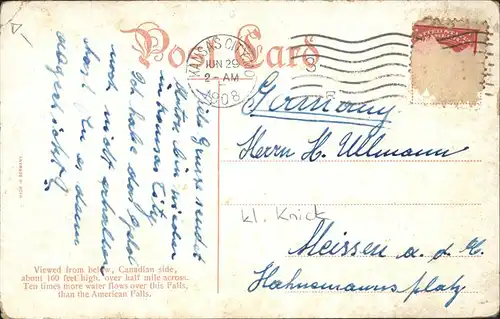 Post Card
KANSAS CITY, MO.
JUN 29
2-AM
1908
Germany
Herrn H. Ullmann
kl. Knick
Meissen a. d. E.
Hahnemannsplatz
Viele Grüsse sendet
Anton, bin wieder
in Kansas City
Ich habe das Geld
noch nicht erhalten
hast Du es denn
abgeschickt?
MADE IN GERMANY
Viewed from below, Canadian side,
about 160 feet high, over half mile across.
Ten times more water flows over this Falls,
than the American Falls.